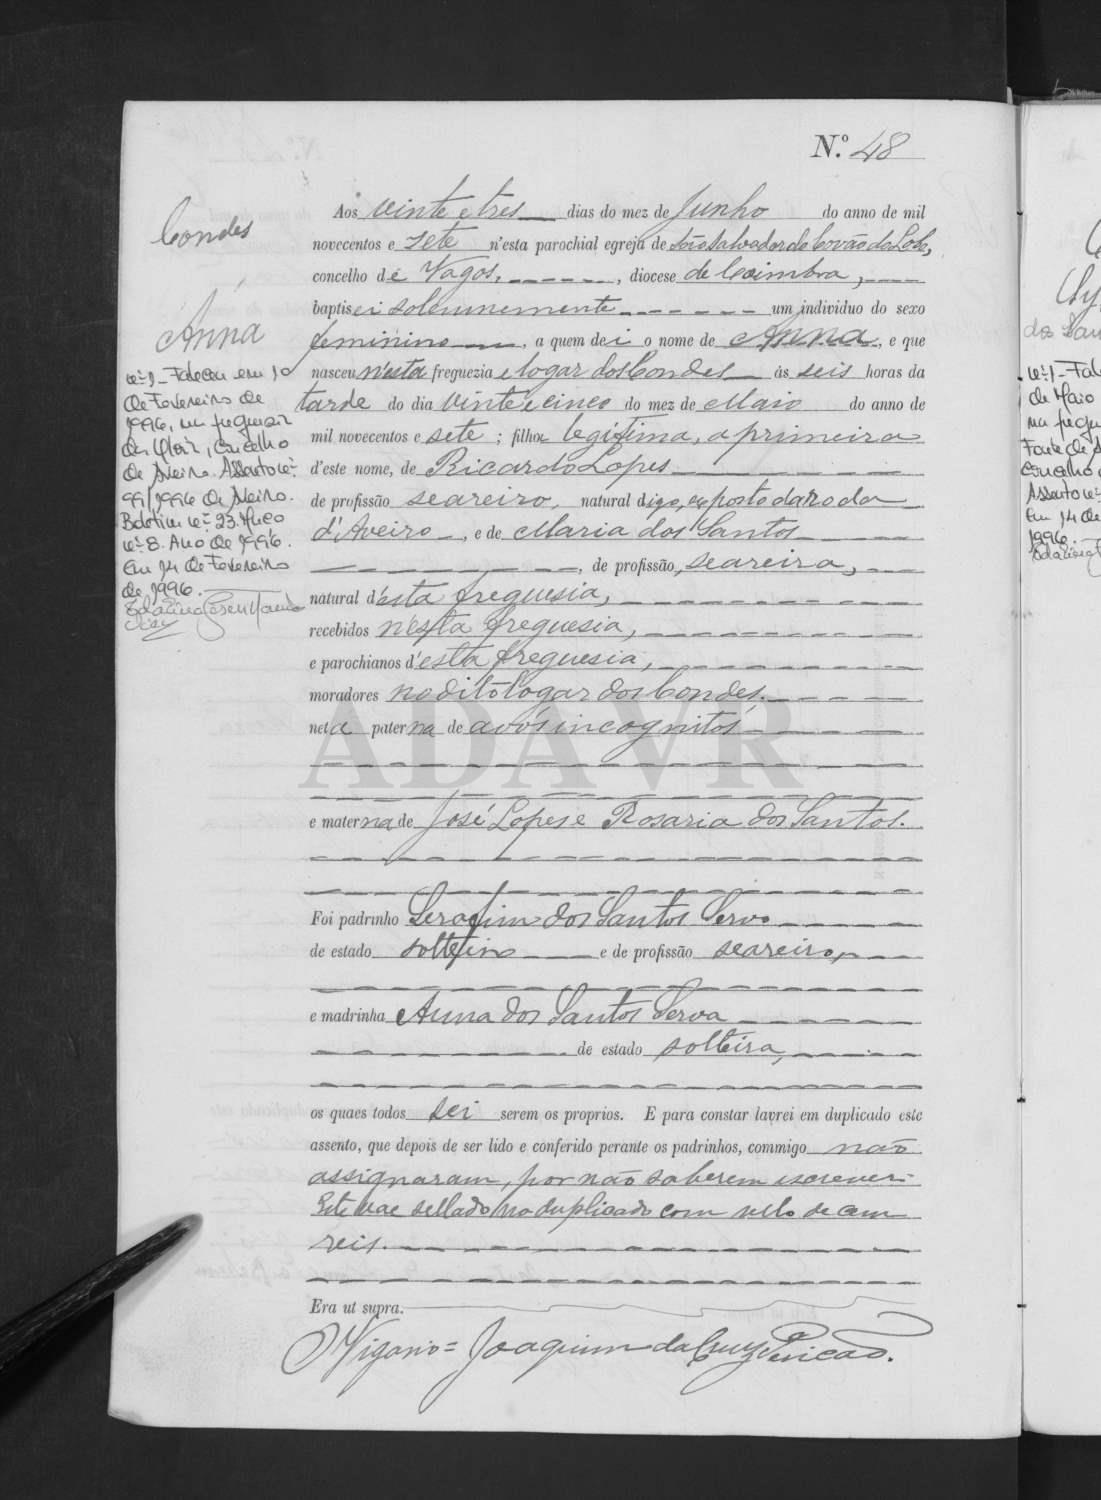 N.º 48
Condes
Anna
Aos vinte e tres dias do mez de Junho do anno de mil
novecentos e sete n'esta parochial egreja de São Salvador do Covão do Lobo,
concelho de Vagos, diocese de Coimbra,
baptisei solemnemente um individuo do sexo
feminino, a quem dei o nome de Anna, e que
nasceu n'esta freguezia e logar dos Condes ás seis horas da
tarde do dia vinte e cinco do mez de Maio do anno de
mil novecentos e sete; filha legitima, a primeira
d'este nome, de Ricardo Lopes
de profissão seareiro, natural digo, exposto da roda
d'Aveiro, e de Maria dos Santos
, de profissão seareira,
natural d'esta freguesia,
recebidos n'esta freguesia,
e parochianos d'esta freguesia,
moradores no dito logar dos Condes.
neta paterna de avós incognitos
e materna de José Lopes e Rosaria dos Santos.
Foi padrinho Serafim dos Santos Servo
de estado solteiro e de profissão seareiro,
e madrinha Anna dos Santos Serva
de estado solteira,
os quaes todos sei serem os proprios. E para constar lavrei em duplicado este
assento, que depois de ser lido e conferido perante os padrinhos, commigo não
assignaram, por não saberem escrever.
Este vae sellado no duplicado com sello de cem
reis.
Era ut supra.
O Vigario = Joaquim da Cruz
nº 1 - Faleceu em 10
de Fevereiro de
1996, na freguesia
da Glória, concelho
de Aveiro. Assento nº
99/1996 de Aveiro.
Boletim nº 23. Maço
nº 8. Ano de 1996.
Em 14 de Fevereiro
de 1996.
nº 1 - Fale
de Maio
na fregu
Fonte de A
concelho
Assento nº
Em 14 de
1996.
ADAVR